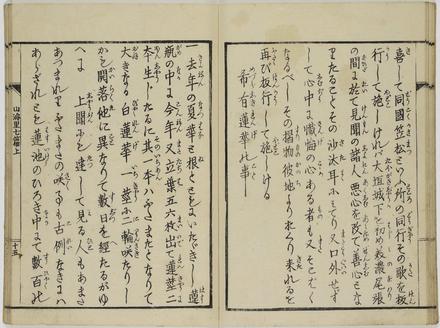 喜して同國笠松といふ所の同行その歌を板
行して施しければ大垣城下を初め美濃尾張
の間に於て見聞の諸人悪心を改て善心になり
りたることその沙汰耳にみてり又口外せず
して心中に慚悔のこゝろある者もいとおほく
なるべしその摺物彼地より求め来れるを
再び板行して施しける
希有白蓮華の事
一去年の夏華も根ともをもいたゞきし蓮
瓶の中に今年又立葉五六枚出て蓮莖二
本生じたるに其一本はふたまたとなりて
大きなる白蓮華一莖に二輪咲たり
かも開落他に異なりて數日を經たるがゆ
へに上聞にも達して見る人もあまた
あつまれりふたまたの咲しも古例なきには
あらざれども蓮池のひろき中にて數百の
山海里七篇上
十五